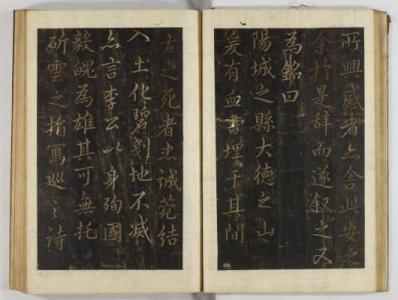 所興感者亦含此安之
余於是辞而遂叙之又
為銘曰
陽城之縣大德之山
爰有血書埋于其間
古之死者忠誠菀結
入土化碧刻地不滅
亦言李公以身殉國
毅魄為雄其可無托
斫雲之指寫巡之詩